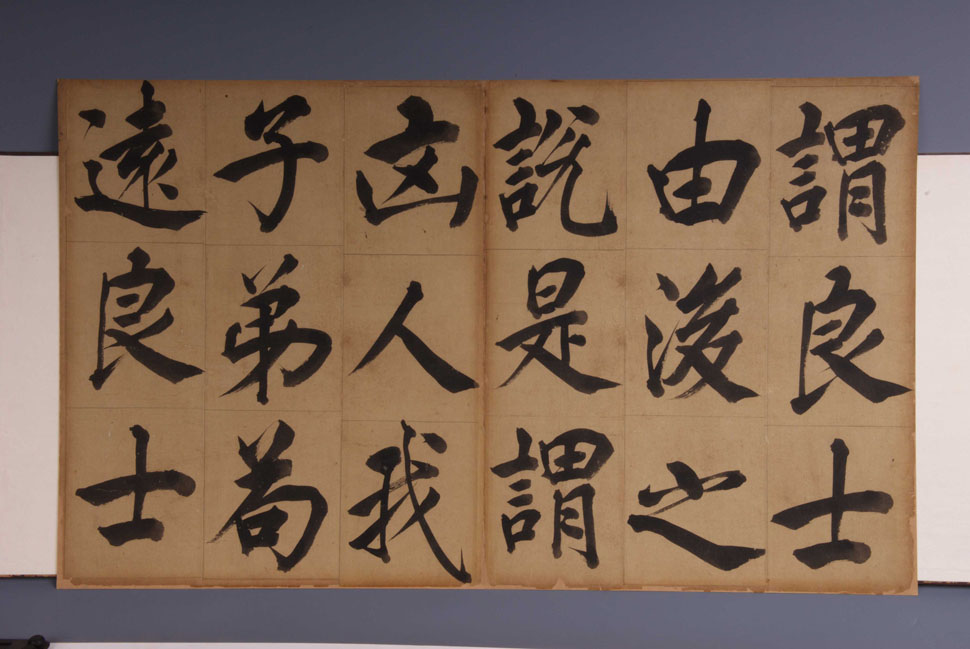 謂良士
由後之
說是謂
凶人我
子弟苟
遠良士